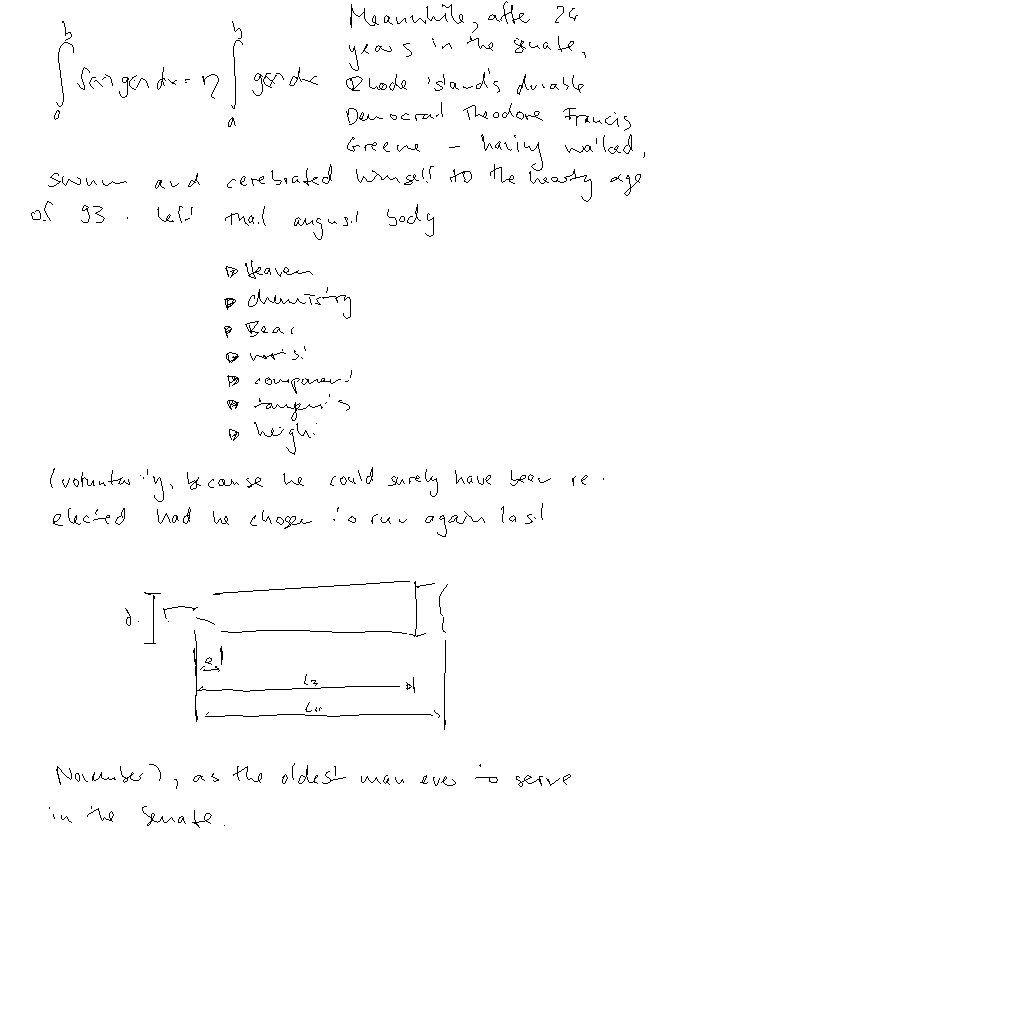 ∫ₐᵇ f(x) g(x) dx = η ∫ₐᵇ g(x) dx
Meanwhile, after 24
years in the senate,
Rhode island's durable
Democrat Theodore Francis
Greene - having walked,
swum and cerebrated himself to the hearty age
of 93 - left that august body
Heaven
chemistry
Bear
component
tangents
height
(voluntarily, because he could surely have been re-
elected had he chosen to run again last
d
e
November), as the oldest man ever to serve
in the Senate.